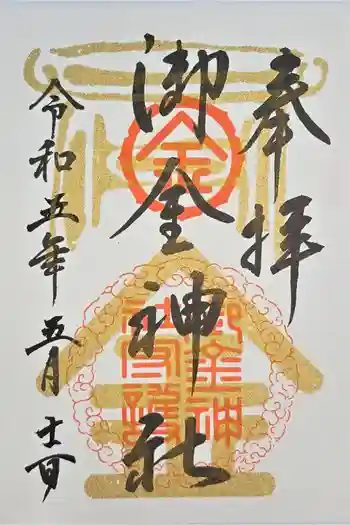 奉拝
御金神社
令和五年五月十二日
金
御金神
社守護